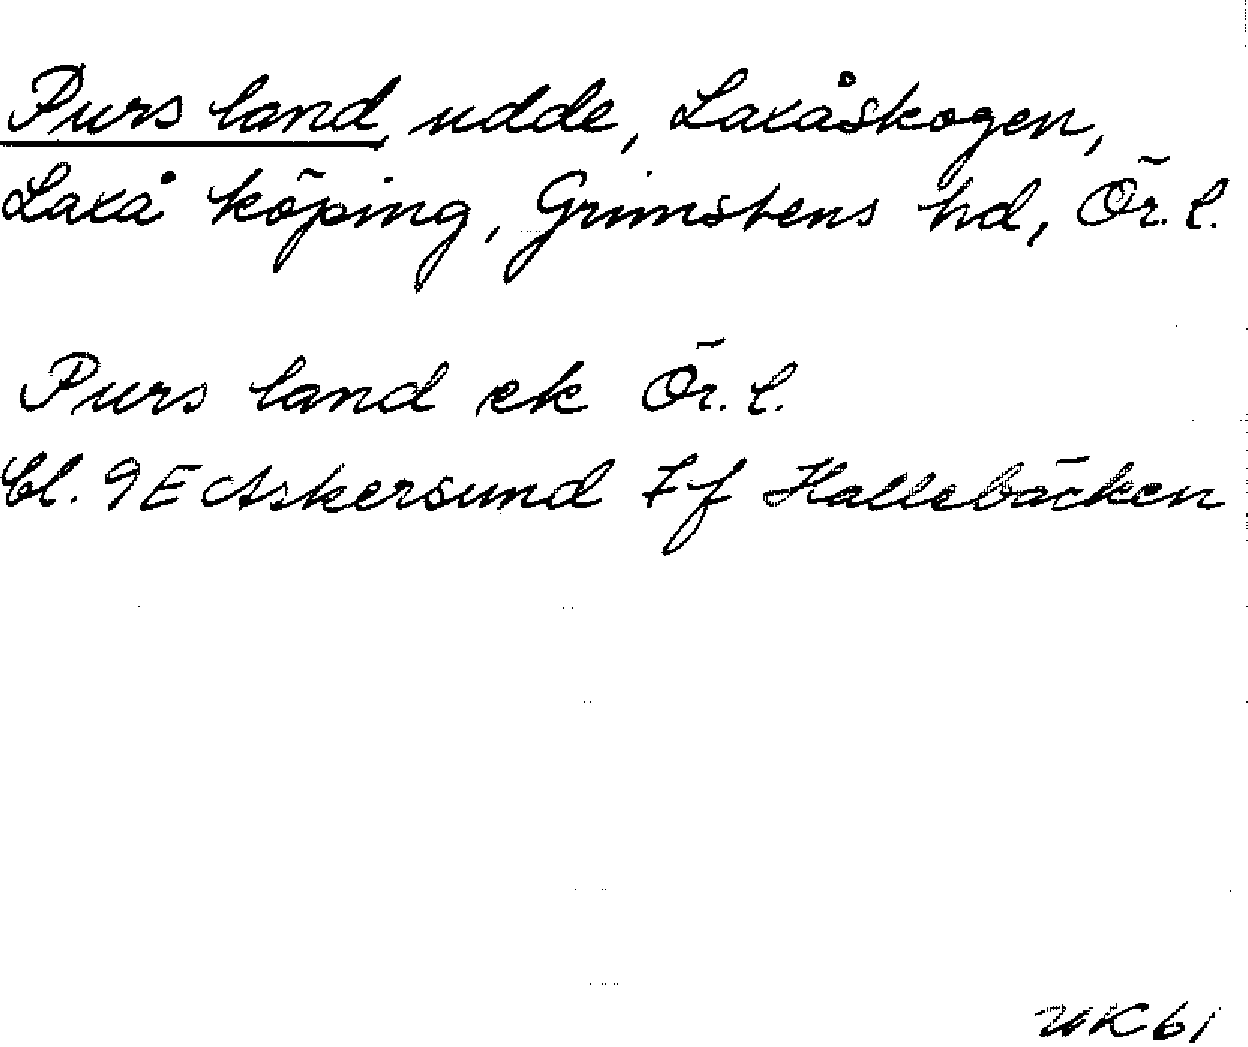 Purs land, udde, Laxåskogen,
Laxå köping, Grimstens hd, Ör. l.
Purs land ek Ör. l.
bl. 9E Askersund 7f Hallebäcken
UK61